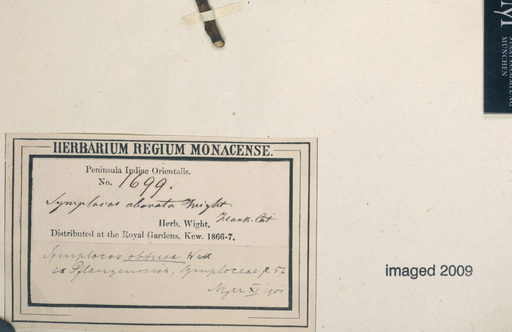 HERBARIUM REGIUM MONACENSE.
Peninsula Indiae Orientalis.
No. 1699.
Symplocos Wight.
Herb. Wight.
Distributed at the Royal Gardens, Kew. 1866-7.
Symplocos obtusa Wall
ex Pflanzenreich, Symplocaceae p. 52
imaged 2009
MÜNCHEN